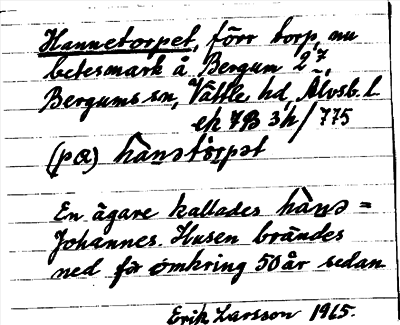 Hannetorpet, förr torp, nu
betesmark å Bergum 2⁷
Bergums sn, Vättle hd, Älvsb. l
ek 7B 3h/775
(på) hànətårpət
En ägare kallades hànə =
Johannes. Husen brändes
ned för omkring 50 år sedan
Erik Larsson 1965.